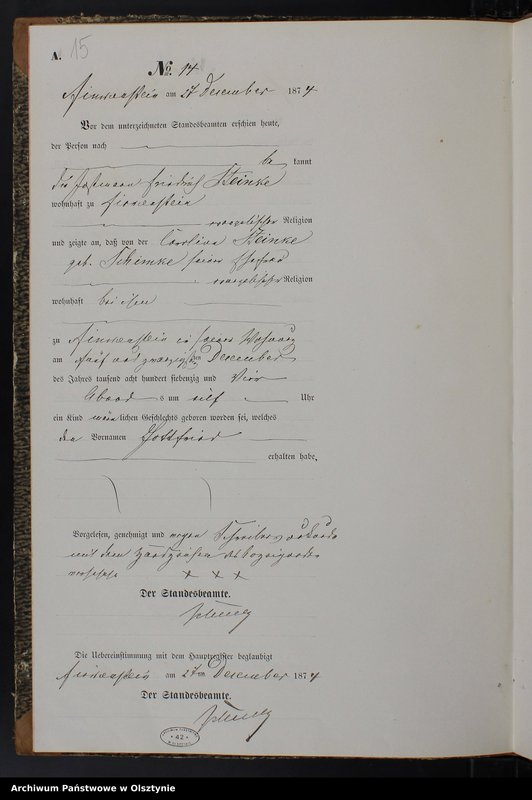 A. 15
No. 14
am 27 December 1874
Vor dem unterzeichneten Standesbeamten erschien heute,
der Person nach
be kannt
Friedrich Steinke
wohnhaft zu
evangelischer Religion
und zeigte an, daß von der Caroline Steinke
geb. Schimke seiner Ehefrau
evangelischer Religion
wohnhaft bei ihm
zu in seiner Wohnung
am fünf und zwanzigsten December
des Jahres tausend acht hundert siebenzig und Vier
Abends um Uhr
ein Kind männlichen Geschlechts geboren worden sei, welches
den Vornamen Gottfried
erhalten habe.
Vorgelesen, genehmigt und wegen
mit dem Handzeichen des
versehen + + +
Der Standesbeamte.
Die Uebereinstimmung mit dem Hauptregister beglaubigt
am 27ten December 1874
Der Standesbeamte.
42
Archiwum Państwowe w Olsztynie